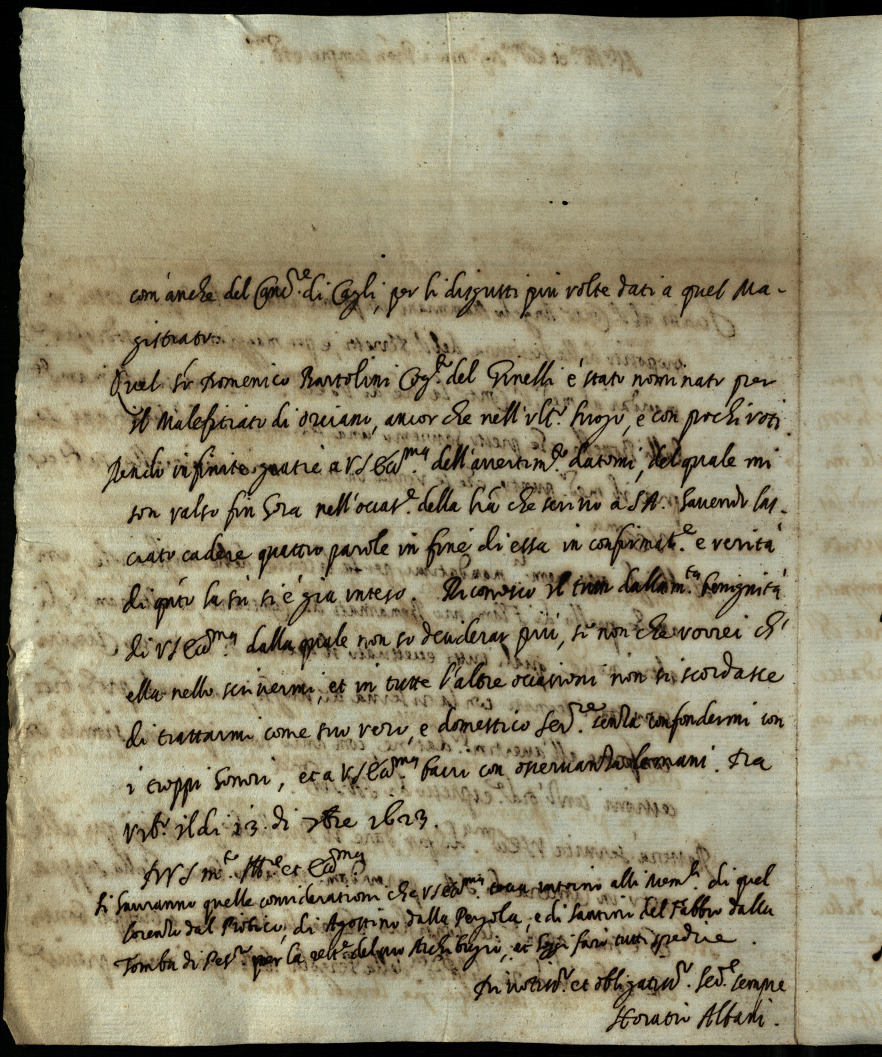 com'anche del Canc.re di Cagli, per li disgusti più volte dati a quel Ma-
gistrato.
Quel S.r Domenico Bartolini Cog.to del Ginelli è stato nominato per
il Malefitiato di Orciano, ancor che nell'ult.o luogo, e con pochi voti.
Rendo infinite gratie a VS Ecc.ma dell'avertim.to datomi, del quale mi
son valso fin hora nell'occas.e della lr̃a che scrivo a SA. havendo las-
ciato cadere quattro parole in fine di essa in confirmat.e e verità
di q̃to la sù si è già inteso. Riconosco il tutto dalla m.ta benignità
di VS Ecc.ma dalla quale non so desiderar più, se non che vorrei ch'
ella nello scrivermi, et in tutte l'altre occasioni non si scordasse
di trattarmi come suo vero, e domestico Ser.re senza confondermi con
i troppi honori, et a VS Ecc.ma bacio con osservanza le mani. Da
Urb.o il dì 23. di 7bre 1623.
D VS m.to Ill.re et Ecc.ma
Si havranno quelle considerationi che VS Ecc.ma intorno alli Mem.li di quel
Lorenzo dal Piobico, di Agostino dalla Pergola, e di Santino del Fabbro dalla
Tomba di Pes.ro per la del suo Archibugio, et hoggi farò tutti spedire.
Devotiss.o et obligatiss.o Ser.re sempre
Horatio Albani.